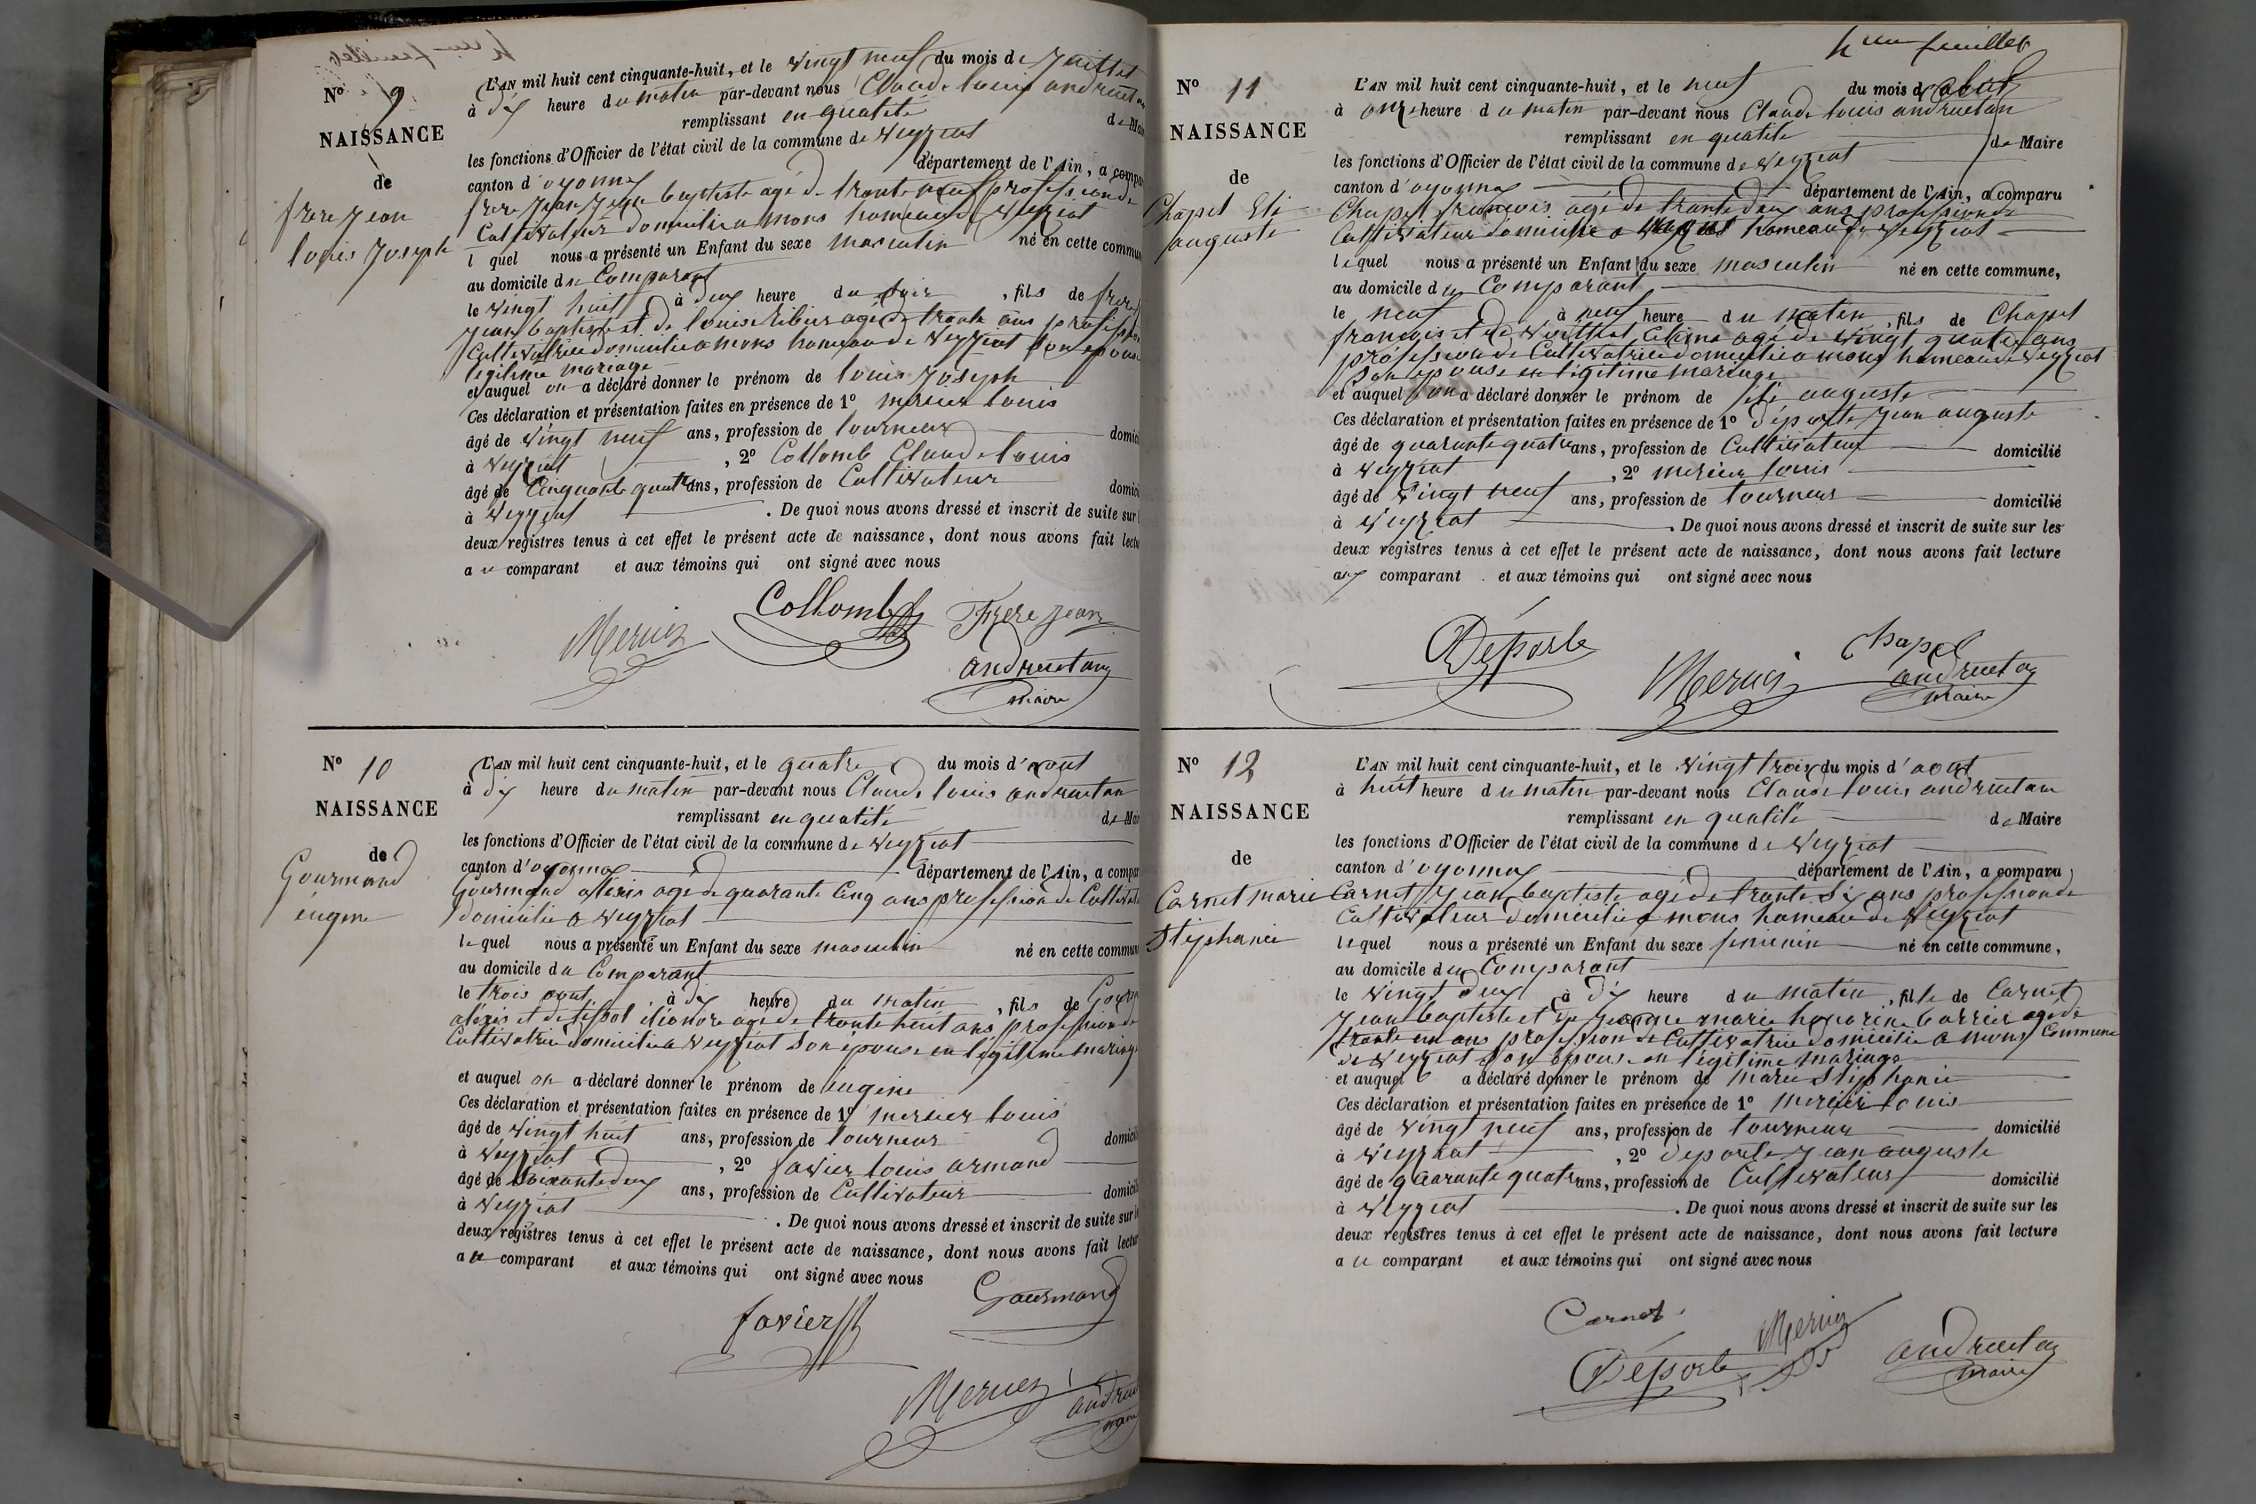 N° 9
NAISSANCE
de
frere Jean
louis Joseph
L'AN mil huit cent cinquante-huit, et le vingt neuf du mois de Juillet
à dix heure du matin par-devant nous Claude louis andruetan
remplissant en qualité de Mai
les fonctions d'Officier de l'état civil de la commune de veyziat
canton d'oyonnax département de l'Ain, a compa
frere Jean Jean baptiste agé de trante neuf profession de
Cultivateur domicilié a mons hameau de veyziat
l quel nous a présenté un Enfant du sexe masculin né en cette commun
au domicile du Comparant
le vingt huit à deux heure du soir, fils de frere
Jean baptiste et de louise agé de trante ans profession
Cultivatrice domiciliée a mons hameau de veyziat son epouse
légitime mariage
et auquel on a déclaré donner le prénom de louis Joseph
Ces déclaration et présentation faites en présence de 1° mercier louis
âgé de vingt neuf ans, profession de tourneur domici
à veyziat, 2° Collomb Claude louis
âgé de Cinquante quatre ans, profession de Cultivateur domici
à veyziat. De quoi nous avons dressé et inscrit de suite sur l
deux registres tenus à cet effet le présent acte de naissance, dont nous avons fait lectu
au comparant et aux témoins qui ont signé avec nous
Mercier Collomb Frere Jean
andruetan
maire
N° 10
NAISSANCE
de
Gourmand
éugene
L'AN mil huit cent cinquante-huit, et le quatre du mois d'aout
à dix heure du matin par-devant nous Claude louis andruetan
remplissant en qualité de Mai
les fonctions d'Officier de l'état civil de la commune de veyziat
canton d'oyonnax département de l'Ain, a compar
Gourmand aléxis agé de quarante Cinq ans profession de Cultivat
domicilié a veyziat
lequel nous a présenté un Enfant du sexe masculin né en cette commun
au domicile du Comparant
le trois aout à dix heure du matin, fils de Gourm
aléxis et de éléonore agé de trante huit ans profession de
Cultivatrice domiciliée a veyziat son epouse en légitime mariage
et auquel on a déclaré donner le prénom de éugene
Ces déclaration et présentation faites en présence de 1° mercier louis
âgé de vingt huit ans, profession de tourneur domicili
à veyziat, 2° favier louis armand
âgé de soixante deux ans, profession de Cultivateur domicili
à veyziat. De quoi nous avons dressé et inscrit de suite sur le
deux registres tenus à cet effet le présent acte de naissance, dont nous avons fait lectur
au comparant et aux témoins qui ont signé avec nous
favier Gourmand
Mercier andruet
maire
4me feuillet
N° 11
NAISSANCE
de
Chapel Eli
auguste
L'AN mil huit cent cinquante-huit, et le neuf du mois d'aout
à onze heure du matin par-devant nous Claude louis andruetan
remplissant en qualité de Maire
les fonctions d'Officier de l'état civil de la commune de veyziat
canton d'oyonnax département de l'Ain, a comparu
Chapel francois agé de trante deux ans profession de
Cultivateur domicilié a hameau de veyziat
lequel nous a présenté un Enfant du sexe masculin né en cette commune,
au domicile du Comparant
le neuf à neuf heure du matin, fils de Chapel
francois et de agé de vingt quatre ans
profession de Cultivatrice domiciliée a mons hameau de veyziat
son epouse en légitime mariage
et auquel on a déclaré donner le prénom de auguste
Ces déclaration et présentation faites en présence de 1° déporte Jean auguste
âgé de quarante quatre ans, profession de Cultivateur domicilié
à veyziat, 2° mercier louis
âgé de vingt neuf ans, profession de tourneur domicilié
à veyziat. De quoi nous avons dressé et inscrit de suite sur les
deux registres tenus à cet effet le présent acte de naissance, dont nous avons fait lecture
aux comparant et aux témoins qui ont signé avec nous
Déporte Mercier Chapel
andruetan
maire
N° 12
NAISSANCE
de
Carnet marie
Stéphanie
L'AN mil huit cent cinquante-huit, et le vingt trois du mois d'aout
à huit heure du matin par-devant nous Claude louis andruetan
remplissant en qualité de Maire
les fonctions d'Officier de l'état civil de la commune de veyziat
canton d'oyonnax département de l'Ain, a comparu
Carnet Jean baptiste agé de trante six ans profession de
Cultivateur domicilié a mons hameau de veyziat
lequel nous a présenté un Enfant du sexe feminin né en cette commune,
au domicile du Comparant
le vingt deux à dix heure du matin, fille de Carnet
Jean baptiste et de marie honorine agé de
trante un ans profession de Cultivatrice domiciliée a mons Commune
de veyziat son epouse en légitime mariage
et auquel a déclaré donner le prénom de marie Stéphanie
Ces déclaration et présentation faites en présence de 1° mercier louis
âgé de vingt neuf ans, profession de tourneur domicilié
à veyziat, 2° déporte Jean auguste
âgé de quarante quatre ans, profession de Cultivateur domicilié
à veyziat. De quoi nous avons dressé et inscrit de suite sur les
deux registres tenus à cet effet le présent acte de naissance, dont nous avons fait lecture
au comparant et aux témoins qui ont signé avec nous
Carnet Mercier
Déporte andruetan
maire